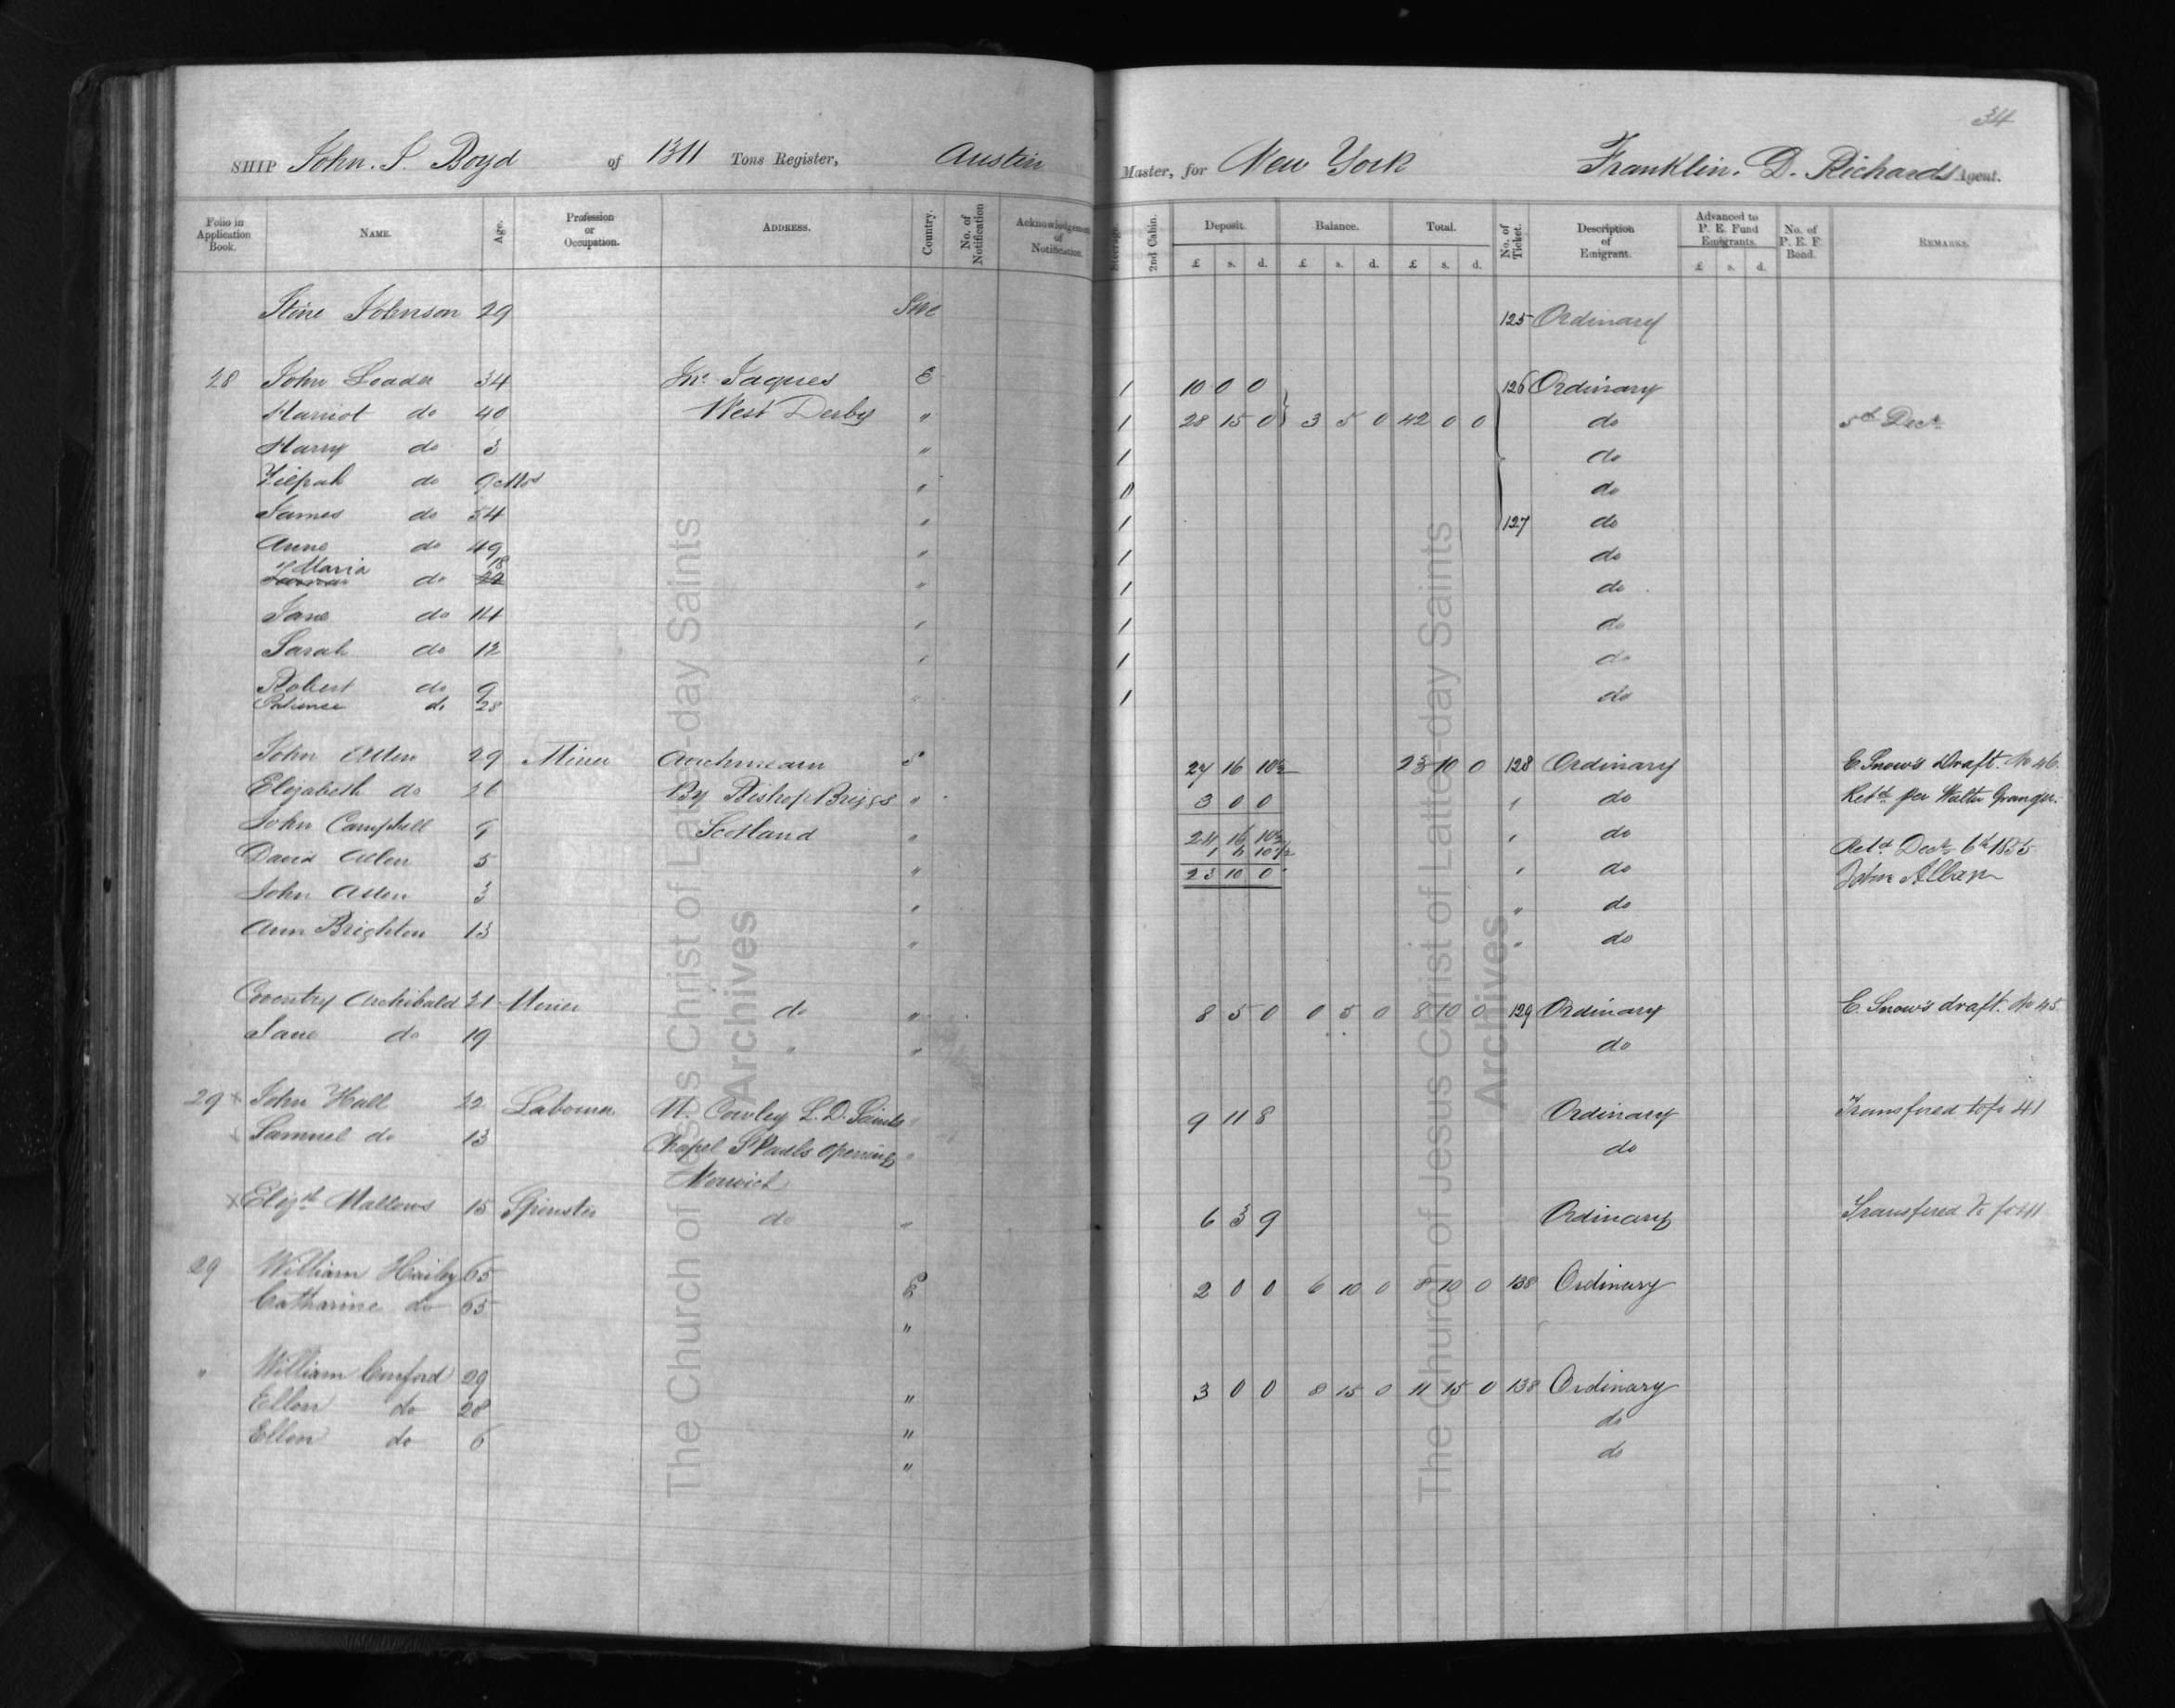 34
SHIP John. J. Boyd of 1311 Tons Register, Austin Master, for New York Franklin. D. Richards Agent.
Folio in Application Book. NAME. Age. Profession or Occupation. ADDRESS. Country. No. of Notification Acknowledgement of Notification. Steerage. 2nd Cabin. Deposit. £ s. d. Balance. £ s. d. Total. £ s. d. No. of Ticket. Description of Emigrant. Advanced to P. E. Fund Emigrants. £ s. d. No. of P. E. F. Bond. REMARKS.
Stine Johnson 29 Swe 125 Ordinary
28 John Loader 34 Jn. Jaques E 1 10 0 0 126 Ordinary
Harriot do 40 West Derby " 1 28 15 0 3 5 0 42 0 0 do 5th Decr
Harry do 3 " 1 do
Zilpah do 9 Mos " 0 do
James do 54 " 1 127 do
Anne do 49 " 1 do
Maria 18
do 22 " 1 do
Jane do 14 " 1 do
Sarah do 12 " 1 do
Robert do 9 " 1 do
Patience do 28
John Allen 29 Miner S 27 16 10½ 23 10 0 128 Ordinary E. Snow's Draft. No 46.
Elizabeth do 26 By Bishop Briggs " 3 0 0 " do Retd per Walter Granger.
John Campbell 9 Scotland " 24 16 10½ " do
David Allen 5 " 1 6 10½ " do Retd Decr 6th 1855
23 10 0 John Allan
John Allen 3 " " do
Ann Brighten 13 " " do
Coventry Archibald 21 Miner do " 8 5 0 0 5 0 8 10 0 129 Ordinary E. Snow's draft. No 45.
Jane do 19 " " do
29 x John Hall 22 Labourer W. Cowley L. D. Saints " 9 11 8 Ordinary Transfered to fo 41
x Samuel do 13 Chapel St Pauls opening " do
Norwich
x Elizth Mallows 15 Spinster do " 6 3 9 Ordinary Transfered to fo 41
29 William Hailey 65 E 2 0 0 6 10 0 8 10 0 138 Ordinary
Catharine do 65 "
" William Conford 29 " 3 0 0 8 15 0 11 15 0 138 Ordinary
Ellen do 28 " do
Ellen do 6 " do
The Church of Jesus Christ of Latter-day Saints
Archives
The Church of Jesus Christ of Latter-day Saints
Archives